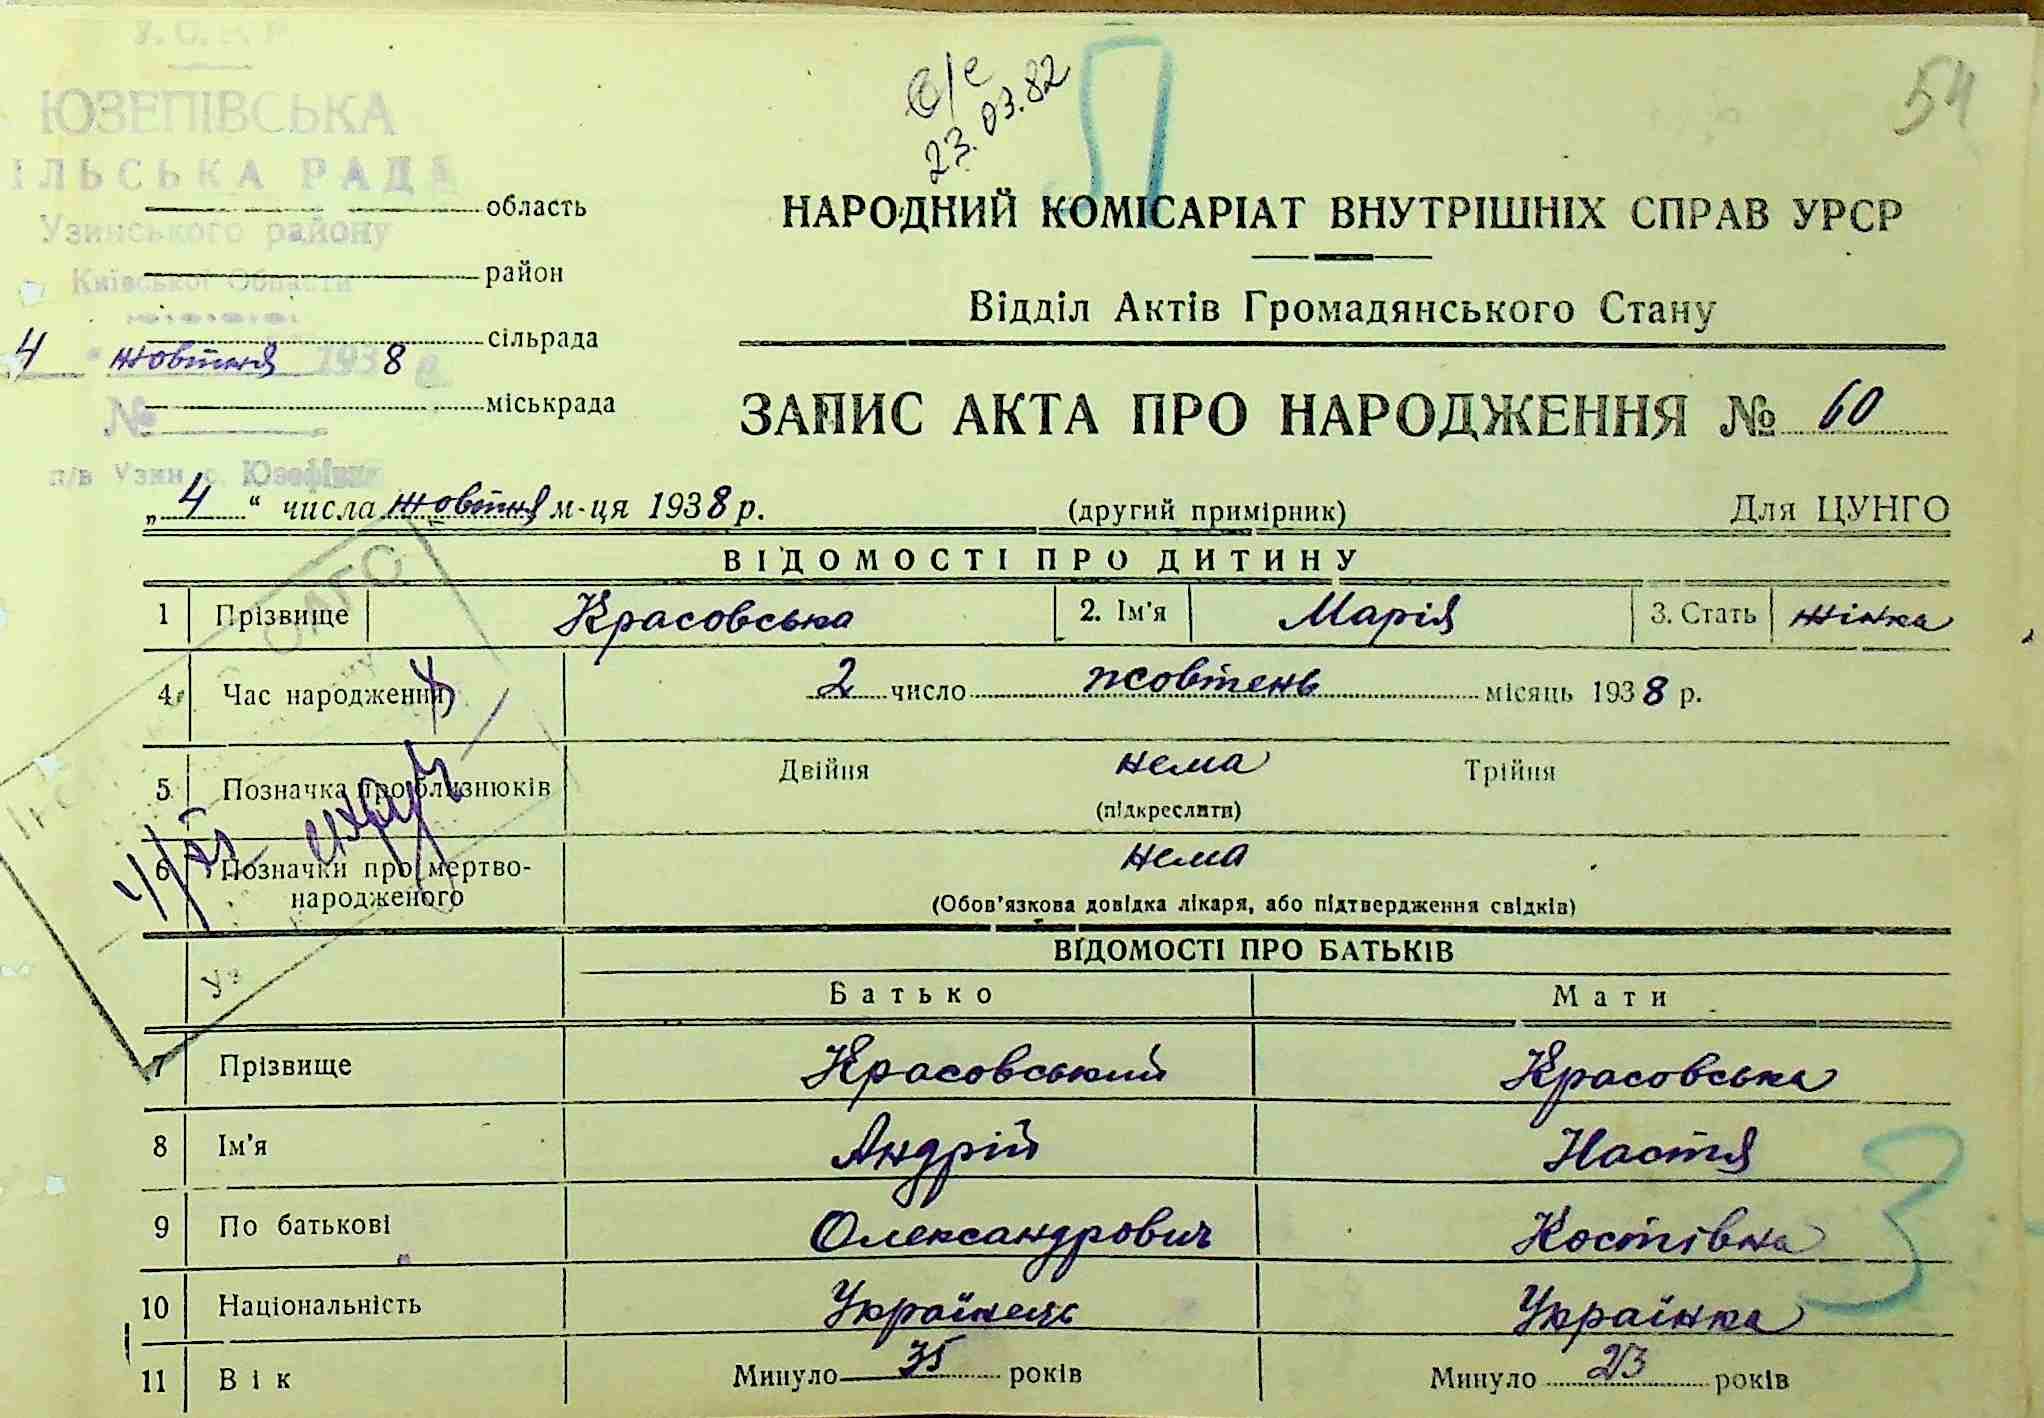 У.С.Р.Р
54
23.03.82
ЮЗЕПІВСЬКА
ІЛЬСЬКА РАДА
область
Узинського району
НАРОДНИЙ КОМІСАРІАТ ВНУТРІШНІХ СПРАВ УРСР
район
Київської Області
Відділ Актів Громадянського Стану
сільрада
4 " жовтня 1938 р.
міськрада
№
ЗАПИС АКТА ПРО НАРОДЖЕННЯ № 60
п/в Узин с. Юзефівка
„ 4 “ числа жовтня м-ця 1938 р. (другий примірник) Для ЦУНГО
ВІДОМОСТІ ПРО ДИТИНУ
1 Прізвище Красовська 2. Ім'я Марія 3. Стать жінка
4 Час народження 2 число жовтень місяць 1938 р.
5 Позначка про близнюків Двійня нема Трійня
(підкреслити)
6 Позначки про мертво-
народженого нема
(Обов'язкова довідка лікаря, або підтвердження свідків)
ВІДОМОСТІ ПРО БАТЬКІВ
Батько Мати
7 Прізвище Красовський Красовська
8 Ім'я Андрій Настя
9 По батькові Олександрович Костівна
10 Національність Українець Українка
11 Вік Минуло 35 років Минуло 23 років
З